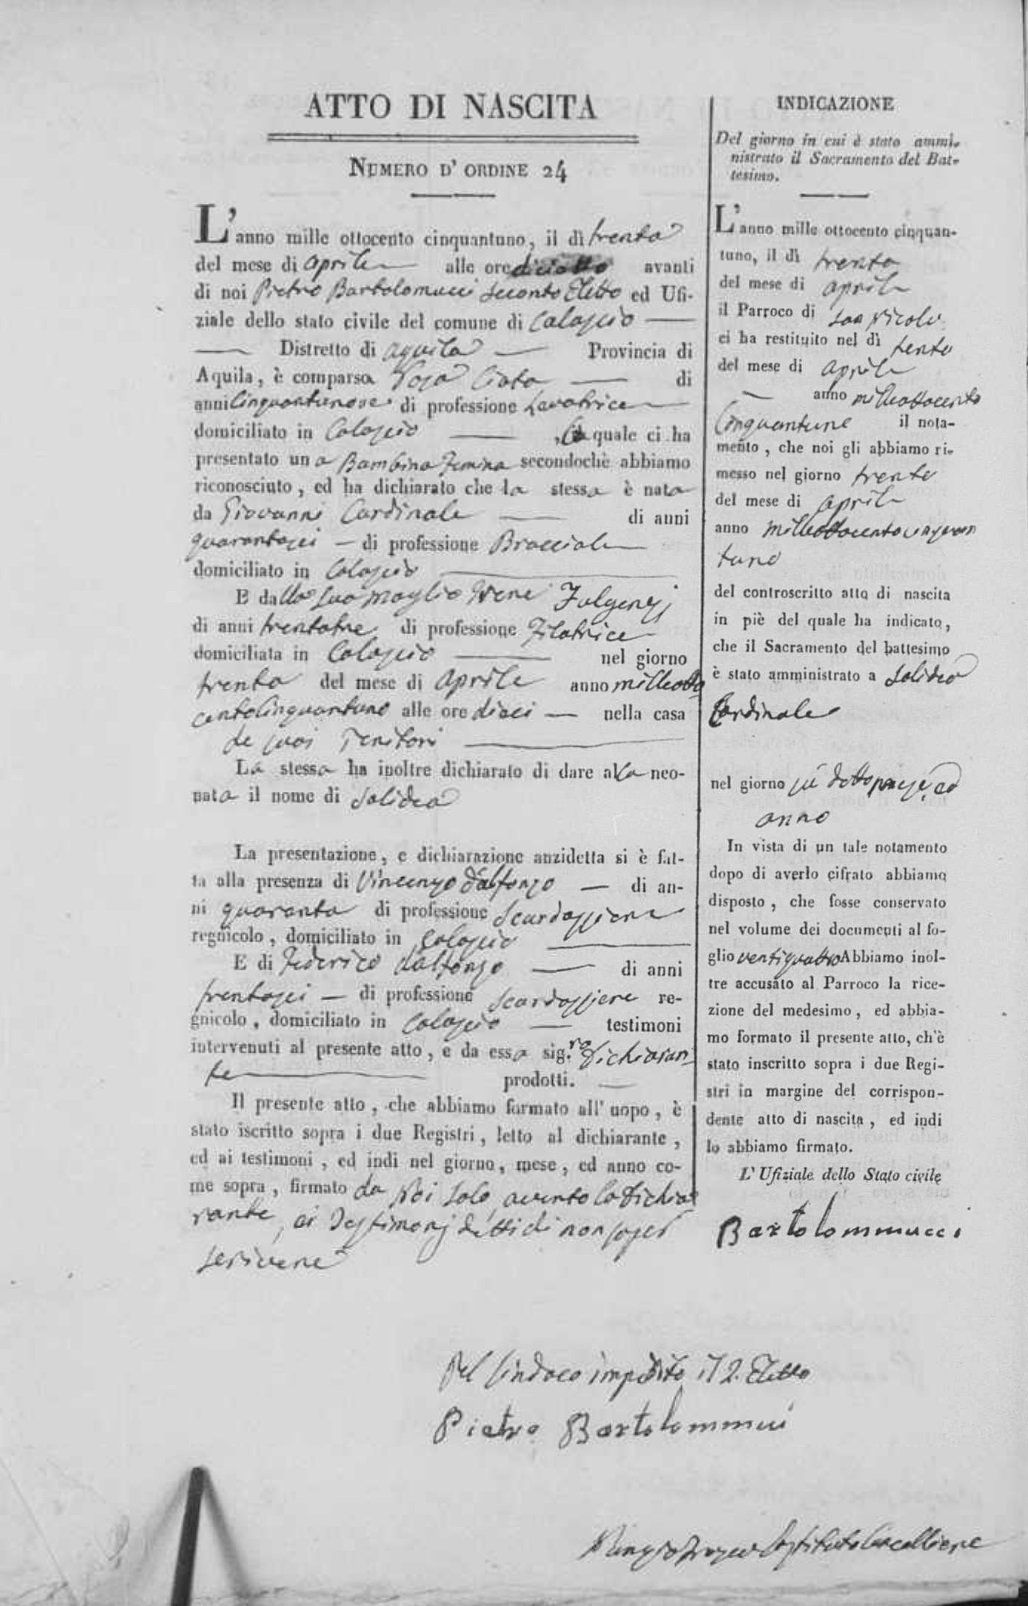 ATTO DI NASCITA
NUMERO D' ORDINE 24
L'anno mille ottocento cinquantuno, il dì trenta
del mese di aprile alle ore diciotto avanti
di noi Pietro Bartolomucci Secondo Eletto ed Ufi-
ziale dello stato civile del comune di Calascio
Distretto di aquila Provincia di
Aquila, è comparsa di
anni Cinquantunose di professione Levatrice
domiciliato in Calascio , La quale ci ha
presentato una Bambina Femina secondochè abbiamo
riconosciuto, ed ha dichiarato che la stessa è nata
da Giovanni Cardinale di anni
quarantasei di professione Bracciale
domiciliato in Calascio
E dalla sua moglie Irene Fulgenzj
di anni trentatre di professione Filatrice
domiciliata in Calascio nel giorno
trenta del mese di Aprile anno milleotto
centoCinquantuno alle ore dieci nella casa
de suoi Genitori
La stessa ha inoltre dichiarato di dare alla neo-
nata il nome di Solidea
La presentazione, e dichiarazione anzidetta si è fat-
ta alla presenza di Vincenzo d'alfonzo di an-
ni quaranta di professione Scardazziere
regnicolo, domiciliato in Calascio
E di Federico d'alfonzo di anni
trentasei di professione Scardazziere re-
gnicolo, domiciliato in Calascio testimoni
intervenuti al presente atto, e da essa sig.ra dichiaran-
te prodotti.
Il presente atto, che abbiamo formato all' uopo, è
stato iscritto sopra i due Registri, letto al dichiarante,
ed ai testimoni, ed indi nel giorno, mese, ed anno co-
me sopra, firmato da Noi solo, avento la Dichia
rante, ei Testimonj detti di non saper
scrivere
Pel Sindaco impedito il 2. Eletto
Pietro Bartolommucci
INDICAZIONE
Del giorno in cui è stato ammi-
nistrato il Sacramento del Bat-
tesimo.
L'anno mille ottocento cinquan-
tuno, il dì trenta
del mese di aprile
il Parroco di San Nicola
ci ha restituito nel dì trenta
del mese di aprile
anno milleottocento
Cinquantuno il nota-
mento, che noi gli abbiamo ri-
messo nel giorno trenta
del mese di aprile
anno milleottocentocinquan
tuno
del controscritto atto di nascita
in piè del quale ha indicato,
che il Sacramento del battesimo
è stato amministrato a Solidea
Cardinale
nel giorno su detto mese, ed
anno
In vista di un tale notamento
dopo di averlo cifrato abbiamo
disposto, che fosse conservato
nel volume dei documenti al fo-
glio ventiquattro Abbiamo inol-
tre accusato al Parroco la rice-
zione del medesimo, ed abbia-
mo formato il presente atto, ch'è
stato inscritto sopra i due Regi-
stri in margine del corrispon-
dente atto di nascita, ed indi
lo abbiamo firmato.
L' Ufiziale dello Stato civile
Bartolommucci